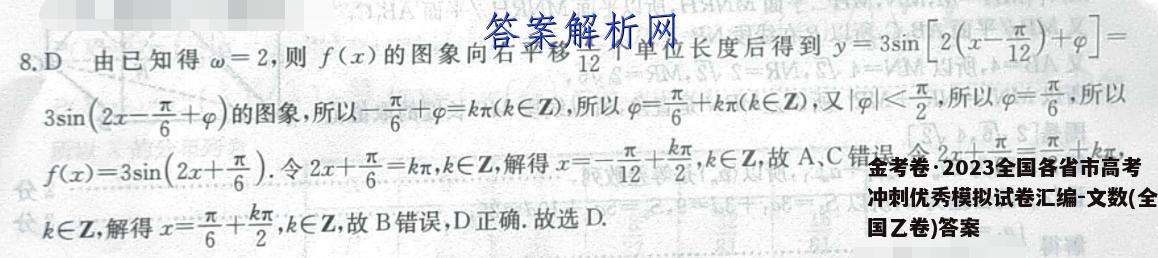 答案解析网
8. D 由已知得 ω=2,则 f(x)的图象向右平移 π/12 个单位长度后得到 y=3sin[2(x-π/12)+φ]=
3sin(2x-π/6+φ)的图象,所以-π/6+φ=kπ(k∈Z),所以 φ=π/6+kπ(k∈Z),又|φ|<π/2,所以 φ=π/6,所以
f(x)=3sin(2x+π/6).令 2x+π/6=kπ,k∈Z,解得 x=-π/12+kπ/2,k∈Z,故 A、C 错误,令 2x+π/6=π/2+kπ,
k∈Z,解得 x=π/6+kπ/2,k∈Z,故 B 错误,D 正确.故选 D.
金考卷·2023全国各省市高考
冲刺优秀模拟试卷汇编-文数(全
国乙卷)答案